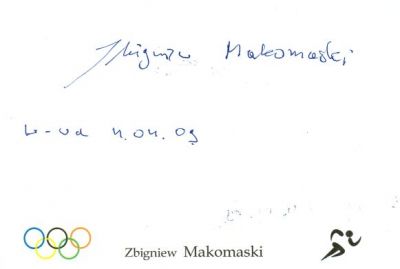 Zbigniew Makomaski
W-wa 11.04.09
Zbigniew Makomaski